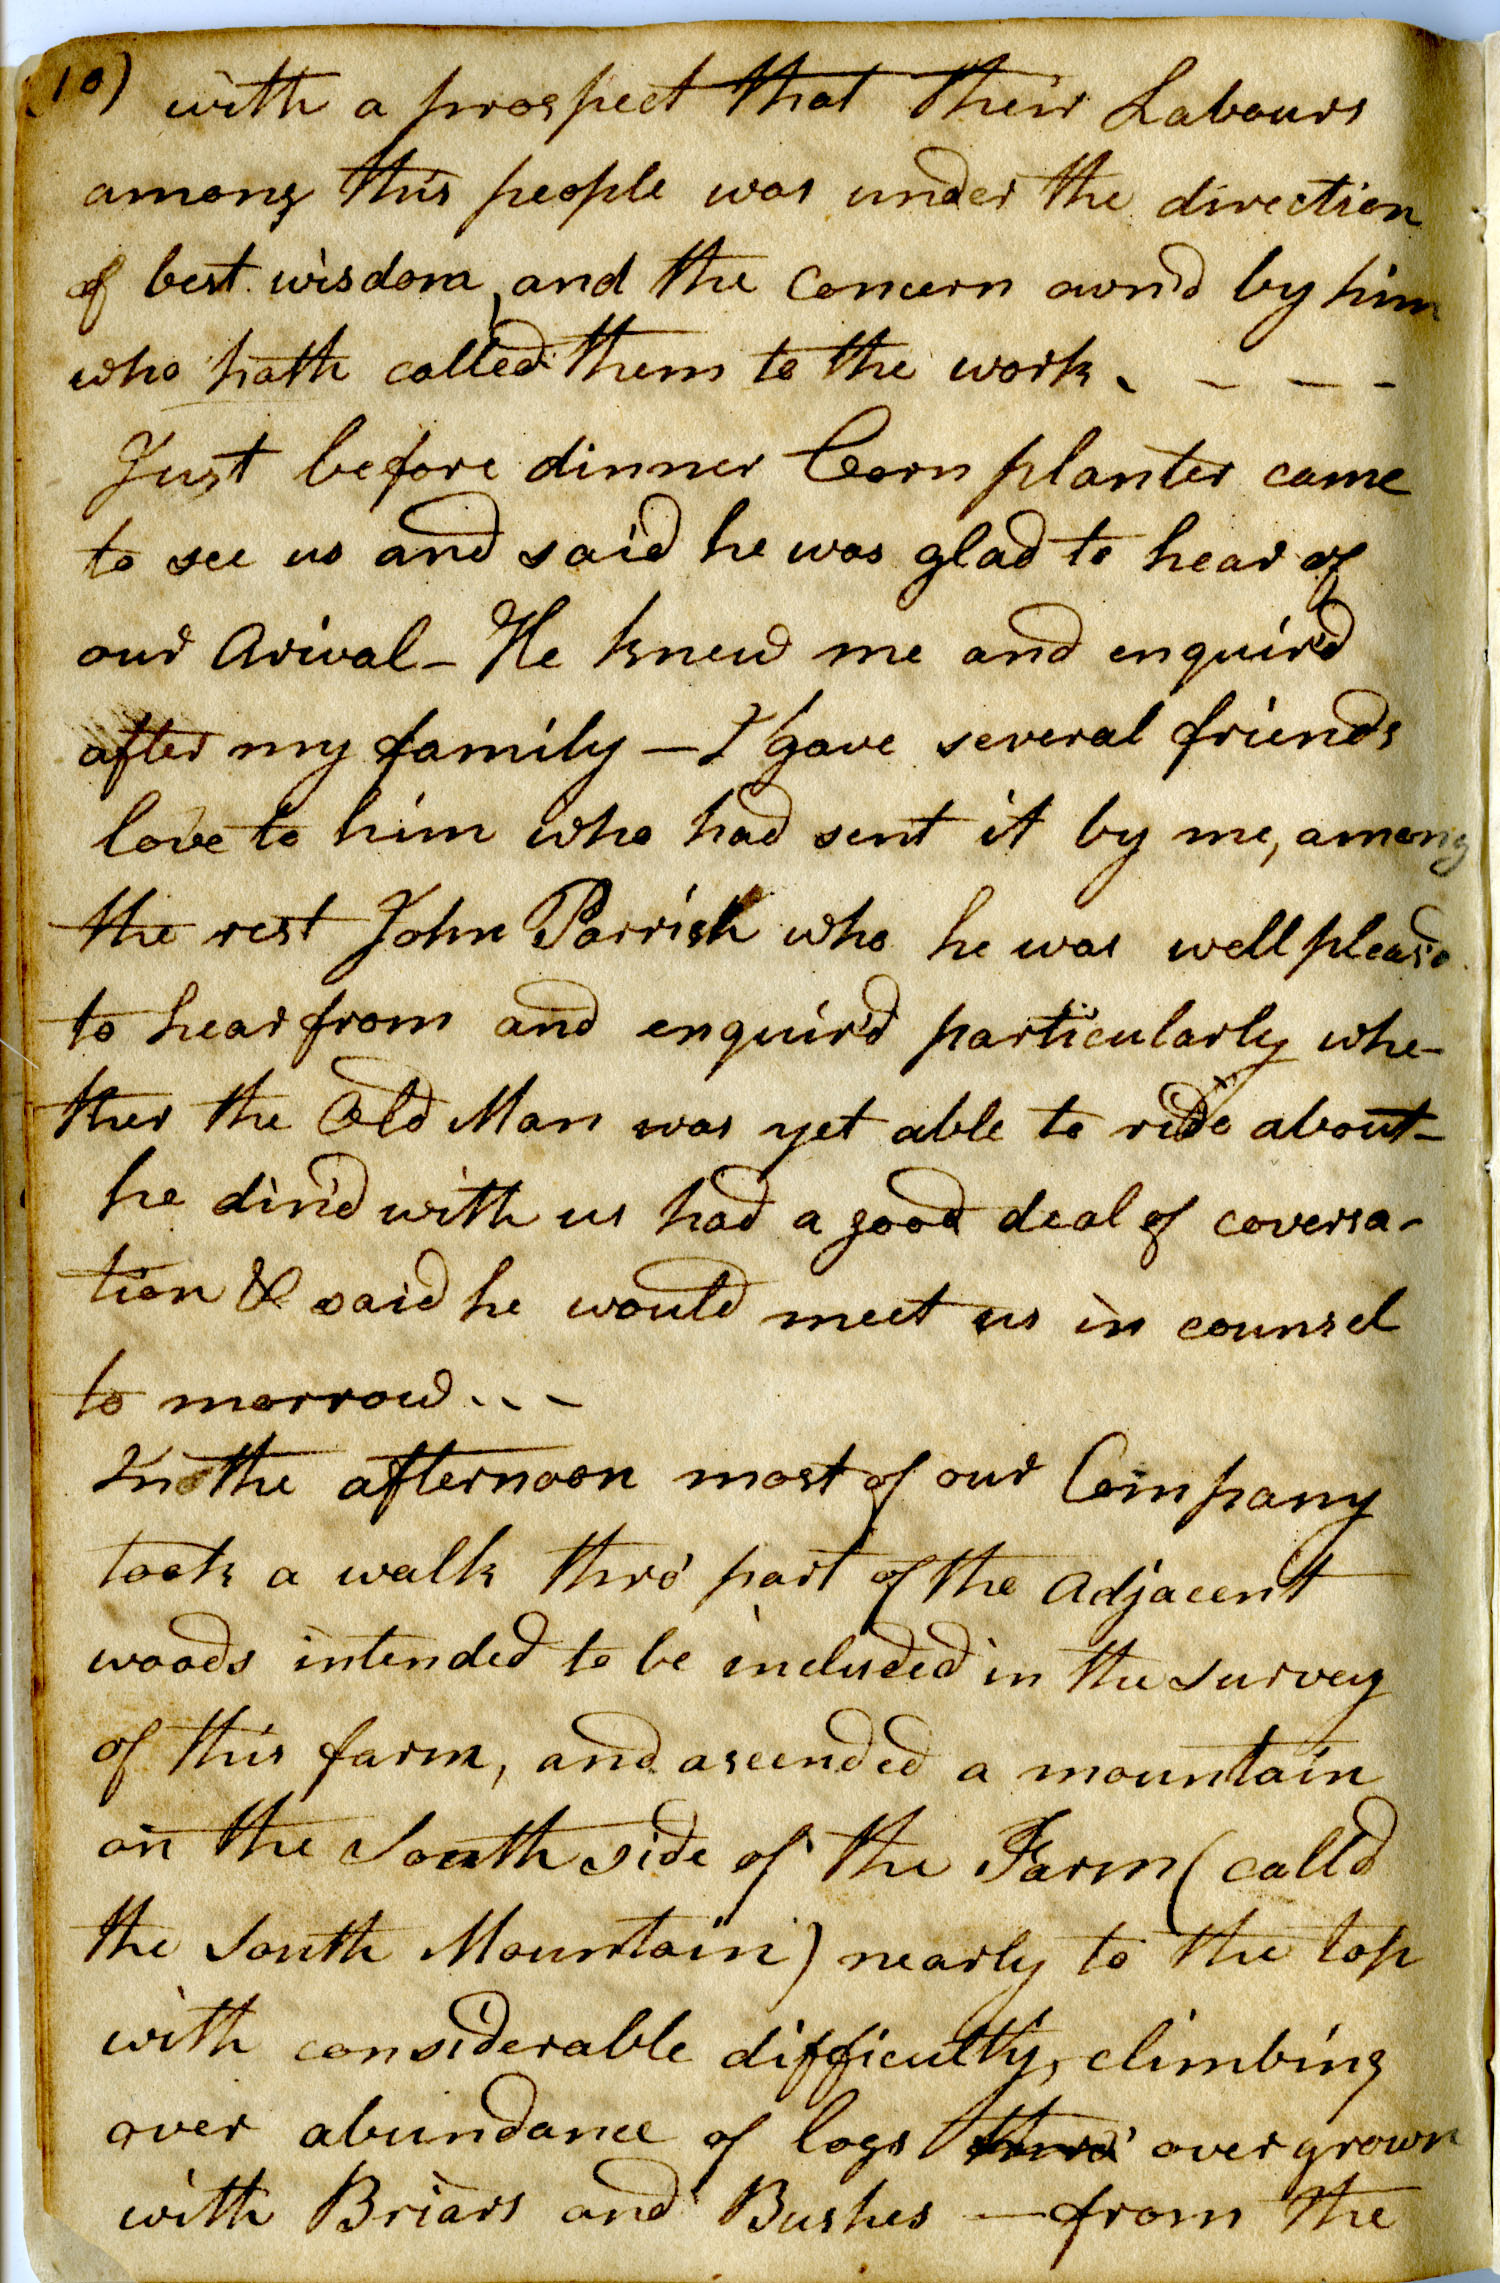 10) with a prospect that their Labours
among this people was under the direction
of best wisdom, and the Concern own'd by him
who hath called them to the work. - - -
Just before dinner Cornplanter came
to see us and said he was glad to hear of
our Arival - He knew me and enquir'd
after my family - I gave several friends
love to him who had sent it by me, among
the rest John Parrish who he was well pleas'd
to hear from and enquir'd particularly whe-
ther the Old Man was yet able to ride about -
he din'd with us had a good deal of coversa-
tion & said he would meet us in counsel
to morrow - - -
In the afternoon most of our Company
took a walk thro' part of the Adjacent
woods intended to be included in the survey
of this farm, and ascended a mountain
on the South side of the Farm (call'd
the South Mountain) nearly to the top
with considerable difficulty, climbing
over abundance of logs thro' overgrown
with Briars and Bushes - from the